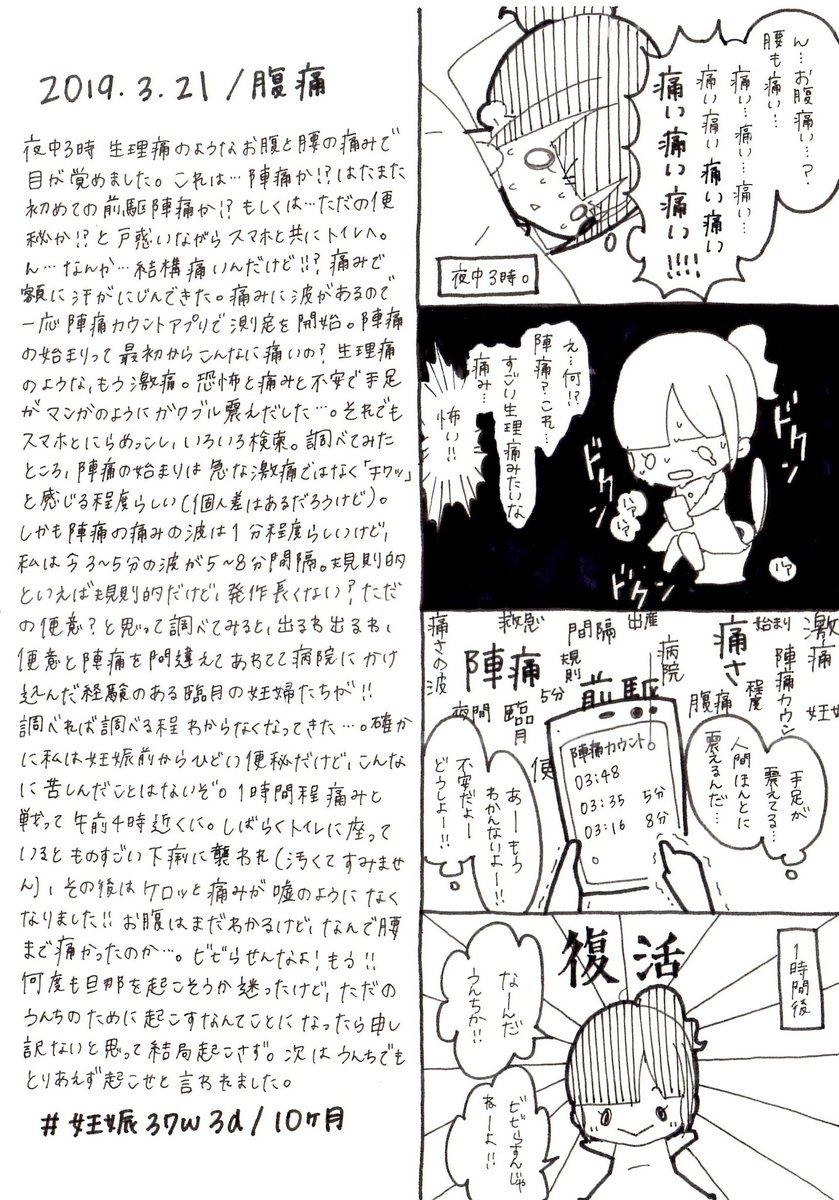 2019.3.21/腹痛
夜中3時 生理痛のようなお腹と腰の痛みで
目が覚めました。これは…陣痛か!?はたまた
初めての前駆陣痛か!?もしくは…ただの便
秘か!?と戸惑いながらスマホと共にトイレへ。
ん…なんか…結構痛いんだけど!!?痛みで
額に汗がにじんできた。痛みに波があるので
一応陣痛カウントアプリで測定を開始。陣痛
の始まりって最初からこんなに痛いの?生理痛
のような、もう激痛。恐怖と痛みと不安で手足
がマンガのようにガクブル震えだした…。それでも
スマホとにらめっこし、いろいろ検索。調べてみた
ところ、陣痛の始まりは急な激痛ではなく「チクッ」
と感じる程度らしい(個人差はあるだろうけど)。
しかも陣痛の痛みの波は1分程度らしいけど、
私は今3~5分の波が5~8分間隔。規則的
といえば規則的だけど、発作長くない?ただ
の便意?と思って調べてみると、出るわ出るわ、
便意と陣痛を間違えてあわてて病院にかけ
込んだ経験のある臨月の妊婦たちが!!
調べれば調べる程わからなくなってきた…。確か
に私は妊娠前からひどい便秘だけど、こんな
に苦しんだことはないぞ。1時間程痛みと
戦って午前4時近くに。しばらくトイレに座って
いるとものすごい下痢に襲われ(汚くてすみませ
ん)、その後はケロッと痛みが嘘のようになく
なりました!!お腹はまだわかるけど、なんで腰
まで痛かったのか…。ビビらせんなよ!もう!!
何度も旦那を起こそうか迷ったけど、ただの
うんちのために起こすなんてことになったら申し
訳ないと思って結局起こさず。次はうんちでも
とりあえず起こせと言われました。
#妊娠37w3d/10ヶ月
ん…お腹痛い…?
腰も痛い…
痛い…痛い…痛い…
痛い痛い痛い痛い
痛い痛い痛い!!!!
夜中3時。
え…何!?
陣痛?これ…
すごい生理痛みたいな
痛み…
怖い!!
ドクン
ドクン
ドクン
ハァ
ハァ
ハァ
激痛
始まり
痛さ
出産
間隔
救急
痛さの波
陣痛カウン
程度
病院
規則
陣痛
妊娠
腹痛
前駆
5分
臨月
夜間
便
手足が
震えてる…
人間ほんとに
震えるんだ…
陣痛カウント。
03:48
03:35 5分
03:16 8分
あーもう
わかんないよー!!
不安だよー
どうしよー!!
1時間後
復活
なーんだ
うんちか!!
ビビらすんじゃ
ねーよ!!